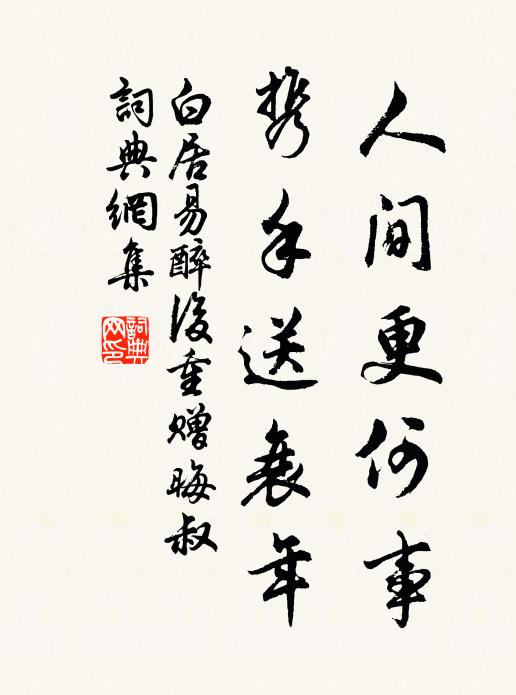 人間更何事
携手送衰年
白居易醉後重贈晦叔
詞典網集
詞典網印